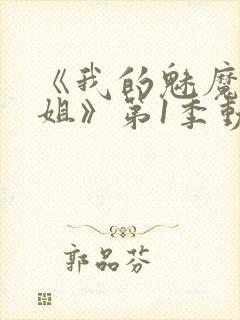 《我的魅魔
姐》第1季動
郭品芬